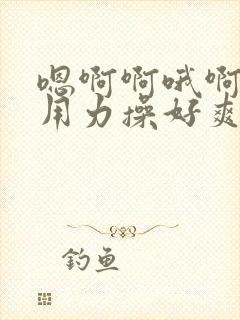 嗯啊啊哦啊
用力操好爽
钓鱼